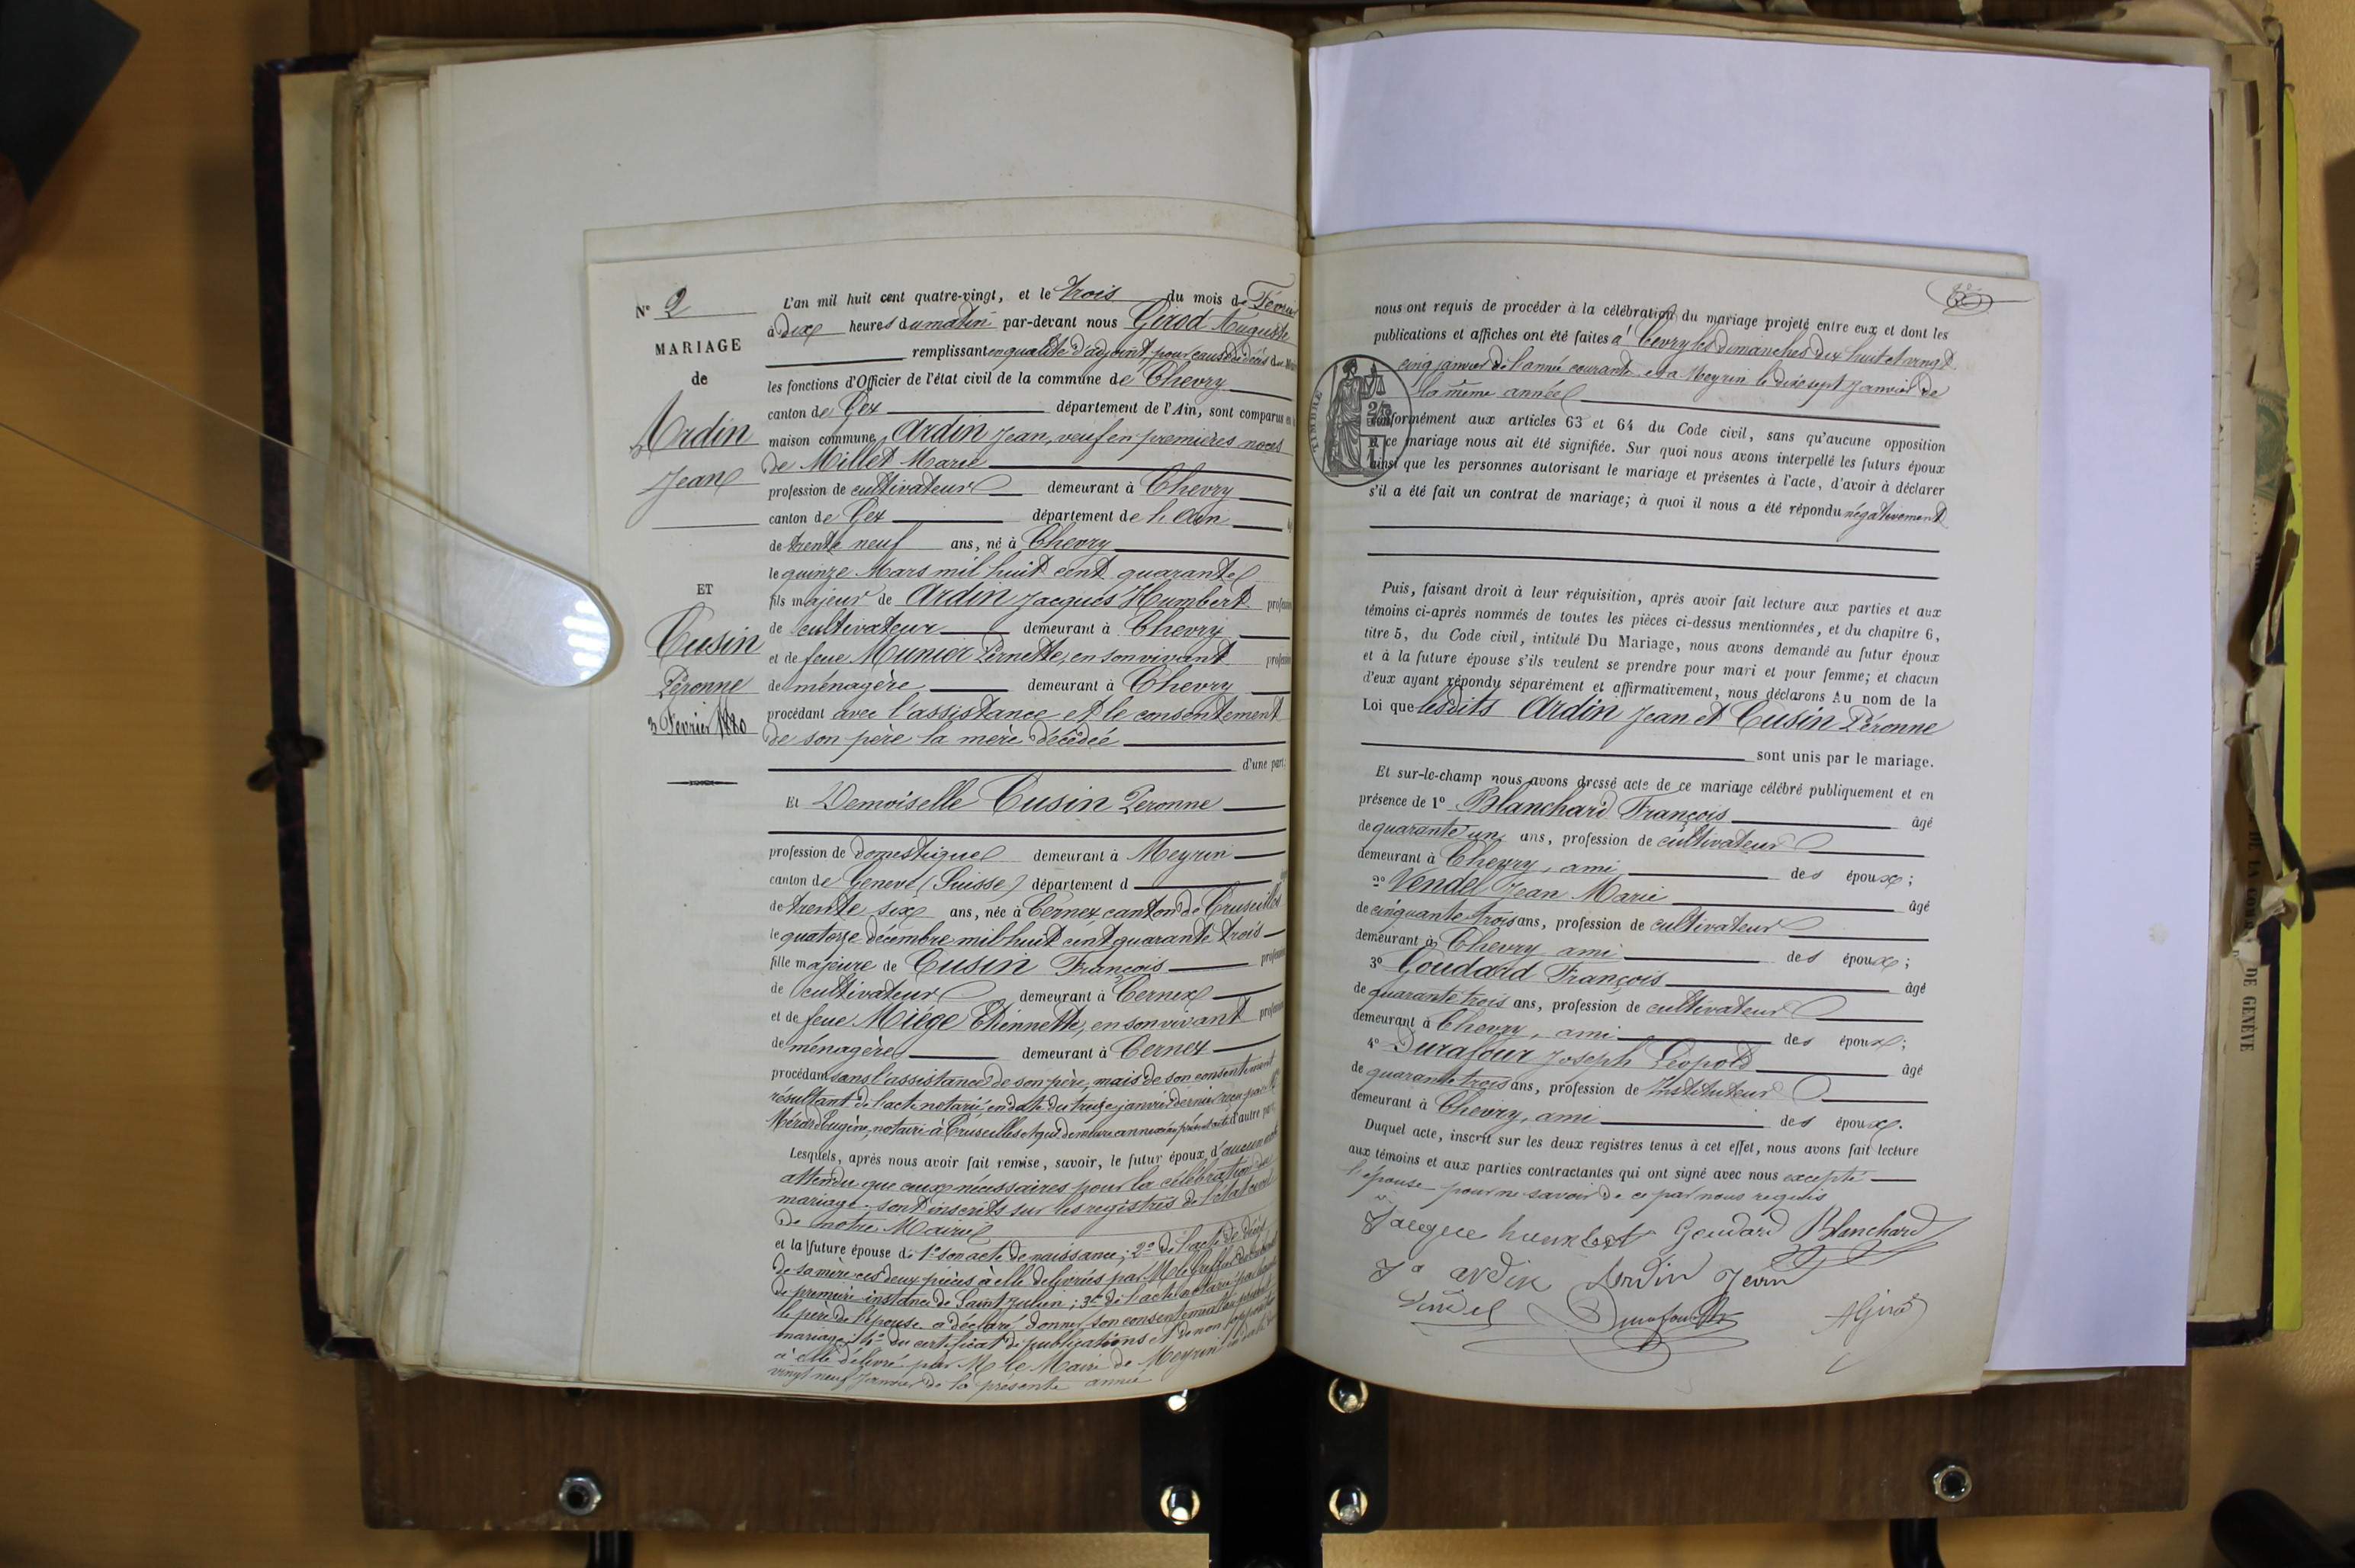 N° 2
MARIAGE
de
Ardin
Jean
ET
Cusin
Péronne
3 Février 1880
L'an mil huit cent quatre-vingt, et le trois du mois de Février
à dix heures du matin par-devant nous Girod Auguste
remplissant en qualité d'adjoint, pour cause de décès du Maire
les fonctions d'Officier de l'état civil de la commune de Chevry
canton de Gex département de l'Ain, sont comparus en la
maison commune, Ardin Jean, veuf en premières noces
de Millet Marie
profession de cultivateur demeurant à Chevry
canton de Gex département de l'Ain
de trente neuf ans, né à Chevry
le quinze Mars mil huit cent quarante
fils majeur de Ardin Jacques Humbert profession
de cultivateur demeurant à Chevry
et de feue Munier Pernette, en son vivant profession
de ménagère demeurant à Chevry
procédant avec l'assistance et le consentement
de son père la mère décédée
d'une part,
Et Demoiselle Cusin Peronne
profession de domestique demeurant à Meyrin
canton de Genève (Suisse) département d
de trente six ans, née à Cernex canton de Cruseilles
le quatorze décembre mil huit cent quarante trois
fille majeure de Cusin François profession
de cultivateur demeurant à Cernex
et de feue Miège Etiennette, en son vivant profession
de ménagère demeurant à Cernex
procédant sans l'assistance de son père, mais de son consentement
résultant de l'acte notarié, en date du treize janvier dernier reçu par Me
Mérard Eugène, notaire à Cruseilles et qui demeure annexé au présent acte d'autre part,
Lesquels, après nous avoir fait remise, savoir, le futur époux d'aucun acte
attendu que ceux nécessaires pour la célébration du
mariage sont inscrits sur les registres de l'état civil
de notre Mairie
et la future épouse de 1° son acte de naissance; 2° de l'acte de décès
de sa mère ces deux pièces à elle délivrées par M. le Greffier du tribunal
de première instance de Saint Julien; 3° de l'acte notarié par lequel
le père de l'épouse a déclaré donner son consentement au présent
mariage; 4° du certificat de publications et de non opposition
à elle délivré par M. le Maire de Meyrin à la date du
vingt neuf Janvier de la présente année
nous ont requis de procéder à la célébration du mariage projeté entre eux et dont les
publications et affiches ont été faites à Chevry les dimanches dix huit et vingt
cinq janvier de l'année courante et à Meyrin le dix sept Janvier de
la même année
TIMBRE
conformément aux articles 63 et 64 du Code civil, sans qu'aucune opposition
à ce mariage nous ait été signifiée. Sur quoi nous avons interpellé les futurs époux
ainsi que les personnes autorisant le mariage et présentes à l'acte, d'avoir à déclarer
s'il a été fait un contrat de mariage; à quoi il nous a été répondu négativement
Puis, faisant droit à leur réquisition, après avoir fait lecture aux parties et aux
témoins ci-après nommés de toutes les pièces ci-dessus mentionnées, et du chapitre 6,
titre 5, du Code civil, intitulé Du Mariage, nous avons demandé au futur époux
et à la future épouse s'ils veulent se prendre pour mari et pour femme; et chacun
d'eux ayant répondu séparément et affirmativement, nous déclarons Au nom de la
Loi que lesdits Ardin Jean et Cusin Péronne
sont unis par le mariage.
Et sur-le-champ nous avons dressé acte de ce mariage célébré publiquement et en
présence de 1° Blanchard François âgé
de quarante un ans, profession de cultivateur
demeurant à Chevry, ami des époux;
2° Vendel Jean Marie âgé
de cinquante trois ans, profession de cultivateur
demeurant à Chevry ami des époux;
3° Goudard François âgé
de quarante trois ans, profession de cultivateur
demeurant à Chevry, ami des époux;
4° Durafour Joseph Léopold âgé
de quarante trois ans, profession de Instituteur
demeurant à Chevry, ami des époux.
Duquel acte, inscrit sur les deux registres tenus à cet effet, nous avons fait lecture
aux témoins et aux parties contractantes qui ont signé avec nous excepté
l'épouse pour ne savoir de ce par nous requis
Jacque humbert Goudard Blanchard
Ja ardin Ardin Jean
Vendel Durafour AGirod
DE GENÈVE